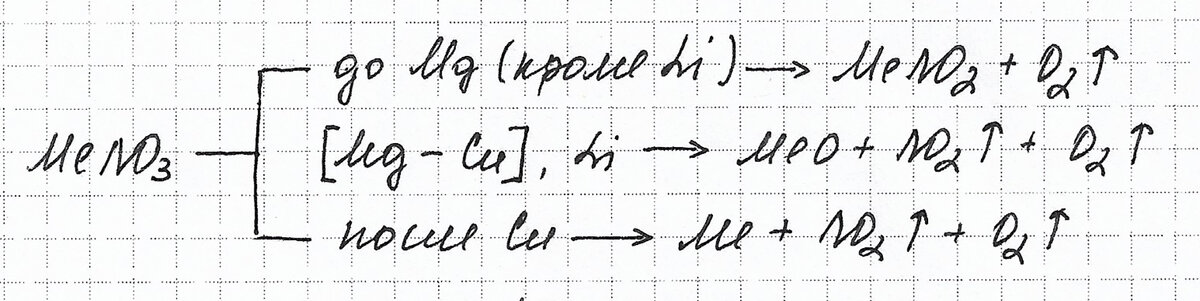 до Mg (кроме Li) → MeNO₂ + O₂↑
MeNO₃ [Mg – Cu], Li → MeO + NO₂↑ + O₂↑
после Cu → Me + NO₂↑ + O₂↑